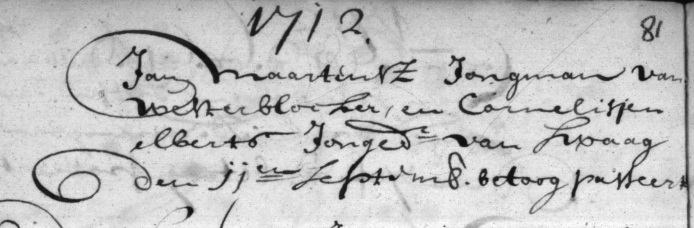 1712. 81
Jan Maartensz Jongman van
Westerblocker, en Cornelisjen
elberts Jonged.r van Hpaag
Den 11en Septemb. betoog passeert